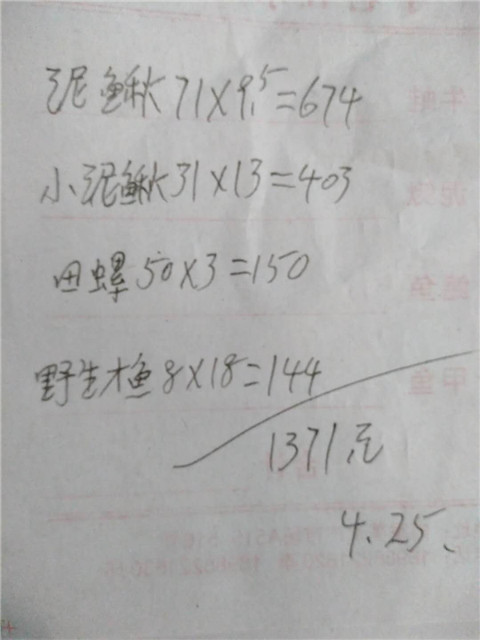 泥鳅71×9.5=674
小泥鳅31×13=403
田螺50×3=150
野生才鱼8×18=144
1371元
4.25、
牛蛙
甲鱼